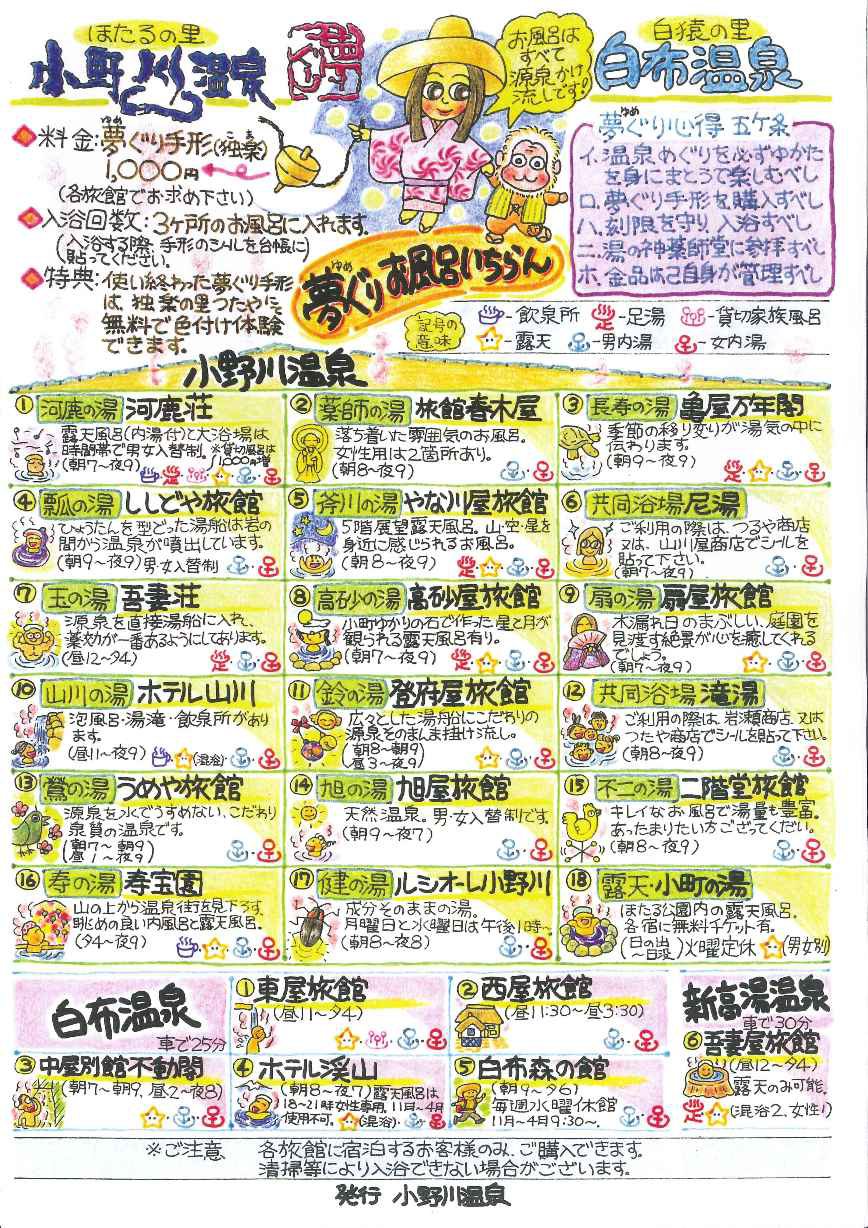 ほたるの里
小野川温泉
お風呂は
すべて
源泉かけ
流しです!
白猿の里
白布温泉
料金:夢ぐり手形(独楽)
ゆめ
こま
1,000円
(各旅館でお求め下さい)
入浴回数:3ヶ所のお風呂に入れます。
(入浴する際、手形のシールを台帳に)
貼ってください。
特典:使い終わった夢ぐり手形
は、独楽の里つたやにて
無料で色付け体験
できます。
ゆめ
夢ぐり心得 五ケ条
イ.温泉めぐりを必ずゆかた
を身にまとうて楽しむべし
ロ.夢ぐり手形を購入すべし
ハ.刻限を守り入浴すべし
ニ.湯の神薬師堂に参拝すべし
ホ.金品は己自身が管理すべし
ゆめ
夢ぐりお風呂いちらん
記号の
意味
-飲泉所 -足湯 -貸切家族風呂
-露天 -男内湯 -女内湯
小野川温泉
① 河鹿の湯 河鹿荘
露天風呂(内湯付)と大浴場は
時間帯で男女入替制。※貸切風呂は
1,000円増
(朝7〜夜9)
② 薬師の湯 旅館春木屋
落ち着いた雰囲気のお風呂。
女性用は2箇所あり。
(朝8〜夜9)
③ 長寿の湯 亀屋万年閣
季節の移り変りが湯気の中に
伝わります。
(朝9〜夜9)
④ 瓢の湯 ししどや旅館
ひょうたんを型どった湯船は岩の
間から温泉が噴出しています。
(朝9〜夜9)男・女入替制
⑤ 斧川の湯 やな川屋旅館
5階展望露天風呂。山・空・星を
身近に感じられるお風呂。
(朝8〜夜9)
⑥ 共同浴場尼湯
ご利用の際は、つるや商店
又は、山川屋商店でシールを
貼って下さい。
(朝7〜夜9)
⑦ 玉の湯 吾妻荘
源泉を直接湯船に入れ、
薬効が一番あるようにしてあります。
(昼12〜夕4)
⑧ 高砂の湯 高砂屋旅館
小町ゆかりの石で作った星と月が
観られる露天風呂有り。
(朝7〜夜9)
⑨ 扇の湯 扇屋旅館
木漏れ日のまぶしい、庭園を
見渡す絶景が心を癒してくれる
でしょう。
(朝7〜夜9)
⑩ 山川の湯 ホテル山川
泡風呂・湯滝・飲泉所があり
ます。
(昼11〜夜9) (混浴)
⑪ 鈴の湯 登府屋旅館
広々とした湯船にこだわりの
源泉そのまんま掛け流し。
(朝8〜朝9)
(昼3〜夜9)
⑫ 共同浴場滝湯
ご利用の際は、岩瀬商店、又は
つたや商店でシールを貼って下さい。
(朝8〜夜9)
⑬ 鶯の湯 うめや旅館
源泉を水でうすめない、こだわり
泉質の温泉です。
(朝7〜朝9)
(昼1〜夜9)
⑭ 旭の湯 旭屋旅館
天然温泉。男・女入替制です。
(朝9〜夜7)
⑮ 不二の湯 二階堂旅館
キレイなお風呂で湯量も豊富。
あったまりたい方ござってくだい。
(朝8〜夜9)
⑯ 寿の湯 寿宝園
山の上から温泉街を見下ろす、
眺めの良い内風呂と露天風呂。
(夕4〜夜9)
⑰ 健の湯 ルシオーレ小野川
成分そのままの湯。
月曜日と水曜日は午後1時〜
(朝8〜夜8)
⑱ 露天・小町の湯
ほたる公園内の露天風呂。
各宿に無料チケット有。
(日の出〜日没)火曜定休 (男女別)
白布温泉
車で25分
① 東屋旅館
(昼11〜夕4)
② 西屋旅館
(昼11:30〜昼3:30)
新高湯温泉
車で30分
③ 中屋別館不動閣
(朝7〜朝9、昼2〜夜8)
④ ホテル渓山
(朝8〜夜7)露天風呂は
18〜21時女性専用。11月〜4月
使用不可。 (混浴)
⑤ 白布森の館
(朝9〜夕6)
毎週水曜休館
11月〜4月9:30〜。
⑥ 吾妻屋旅館
(昼12〜夕4)
露天のみ可能。
(混浴2、女性1)
※ご注意 各旅館に宿泊するお客様のみ、ご購入できます。
清掃等により入浴できない場合がございます。
発行 小野川温泉